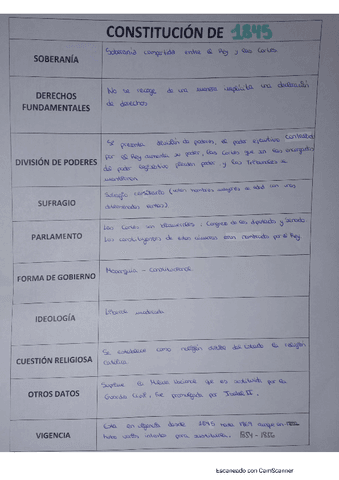 CONSTITUCIÓN DE 1845
SOBERANÍA
Soberanía compartida entre el Rey y las Cortes
DERECHOS
FUNDAMENTALES
No se recoge de una manera explícita una declaración
de derechos
DIVISIÓN DE PODERES
Se presenta división de poderes, el poder ejecutivo controlado
por el Rey aumenta su poder, las Cortes que son las encargadas
del poder legislativo pierden poder y los Tribunales se
SUFRAGIO
Sufragio censitario (votan hombres mayores de edad con unas
determinadas rentas)
PARLAMENTO
Las Cortes son bicamerales, Congreso de los diputados y Senado
Los de estos últimos eran nombrados por el Rey
FORMA DE GOBIERNO
Monarquía - Constitucional
IDEOLOGÍA
Liberal moderada
CUESTIÓN RELIGIOSA
Se establece como religión oficial del Estado la religión
católica
OTROS DATOS
Suprime la Milicia Nacional que es sustituida por la
Guardia Civil. Fue promulgada por Isabel II.
VIGENCIA
Está en vigencia desde 1845 hasta 1869 aunque en
hubo varios intentos para sustituirla. 1854-1856
Escaneado con CamScanner